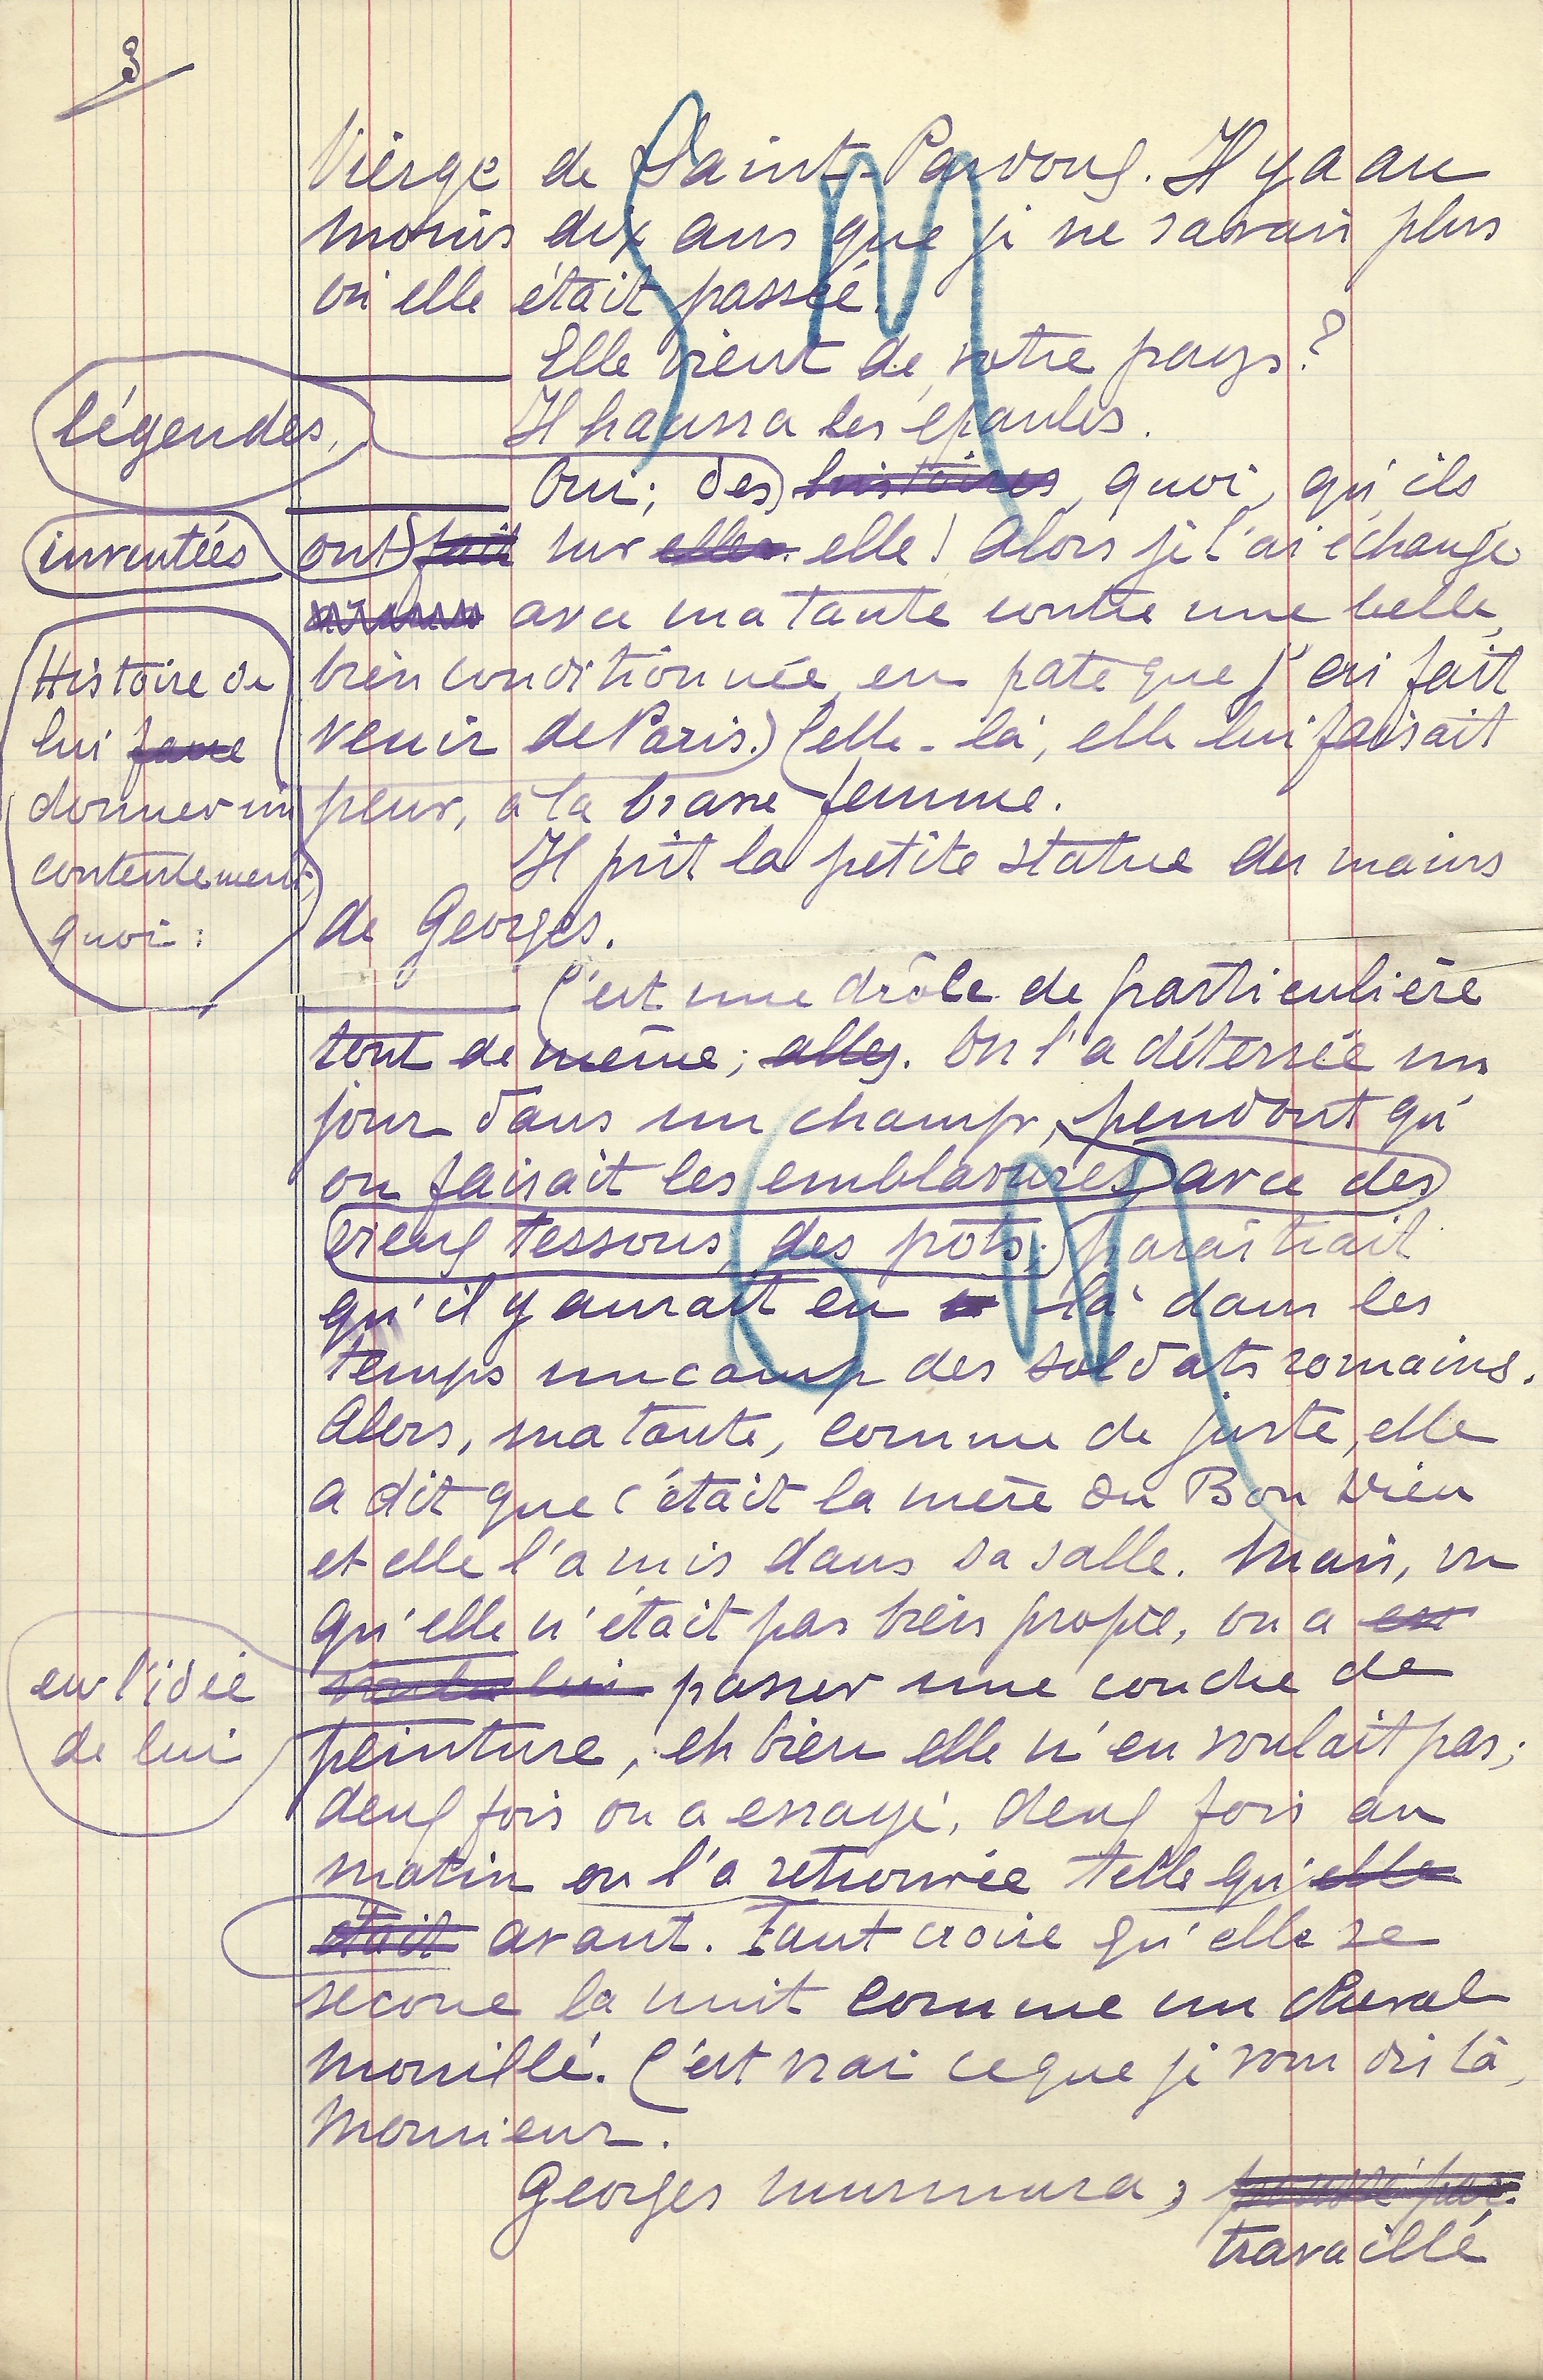 Vierge de Saint-Pardoux. Il y a au
moins dix ans que je ne savais plus
où elle était passée.
Elle vient de votre pays?
légendes,
Il haussa les épaules.
Oui; des histoires, quoi, qu'ils
inventées
ont fait sur elle! Alors je l'ai échangé
avec ma tante contre une belle,
Histoire de
bien conditionnée, en pate que j'ai fait
lui faire
venir de Paris. Celle-là, elle lui faisait
donner un
peur, à la brave femme.
contentement,
Il prit la petite statue des mains
quoi:
de Georges.
C'est une drôle de particulière
tout de même; allez. On l'a déterrée un
jour dans un champ, pendant qu'
on faisait les emblavures, avec des
vieux tessons, des pots; paraîtrait
qu'il y aurait eu là dans les
temps un camp des soldats romains.
Alors, ma tante, comme de juste, elle
a dit que c'était la mère du Bon Dieu
et elle l'a mis dans sa salle. Mais, vu
qu'elle n'était pas bien propre, on a
eu l'idée
voulu lui passer une couche de
de lui
peinture, eh bien elle n'en voulait pas;
deux fois on a essayé, deux fois au
matin on l'a retrouvée telle qu'elle
était avant. Faut croire qu'elle se
secoue la nuit comme un cheval
mouillé. C'est vrai ce que je vous dis là,
Monsieur.
Georges murmura, poussé par
travaillé